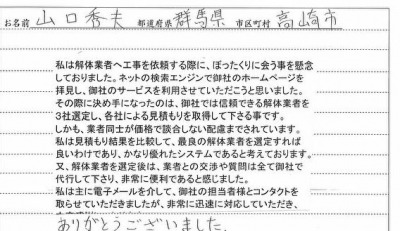 お名前 山口秀夫 都道府県 群馬県 市区町村 高崎市
私は解体業者へ工事を依頼する際に、ぼったくりに会う事を懸念
しておりました。ネットの検索エンジンで御社のホームページを
拝見し、御社のサービスを利用させていただこうと思いました。
その際に決め手になったのは、御社では信頼できる解体業者を
3社選定し、各社による見積もりを取得して下さる事です。
しかも、業者同士が価格で談合しない配慮までされています。
私は見積もり結果を比較して、最良の解体業者を選定すれば
良いわけであり、かなり優れたシステムであると考えております。
又、解体業者を選定後は、業者との交渉や質問は全て御社で
代行して下さり、非常に便利であると感じました。
私は主に電子メールを介して、御社の担当者様とコンタクトを
取らせていただきましたが、非常に迅速に対応していただき、
ありがとうございました。